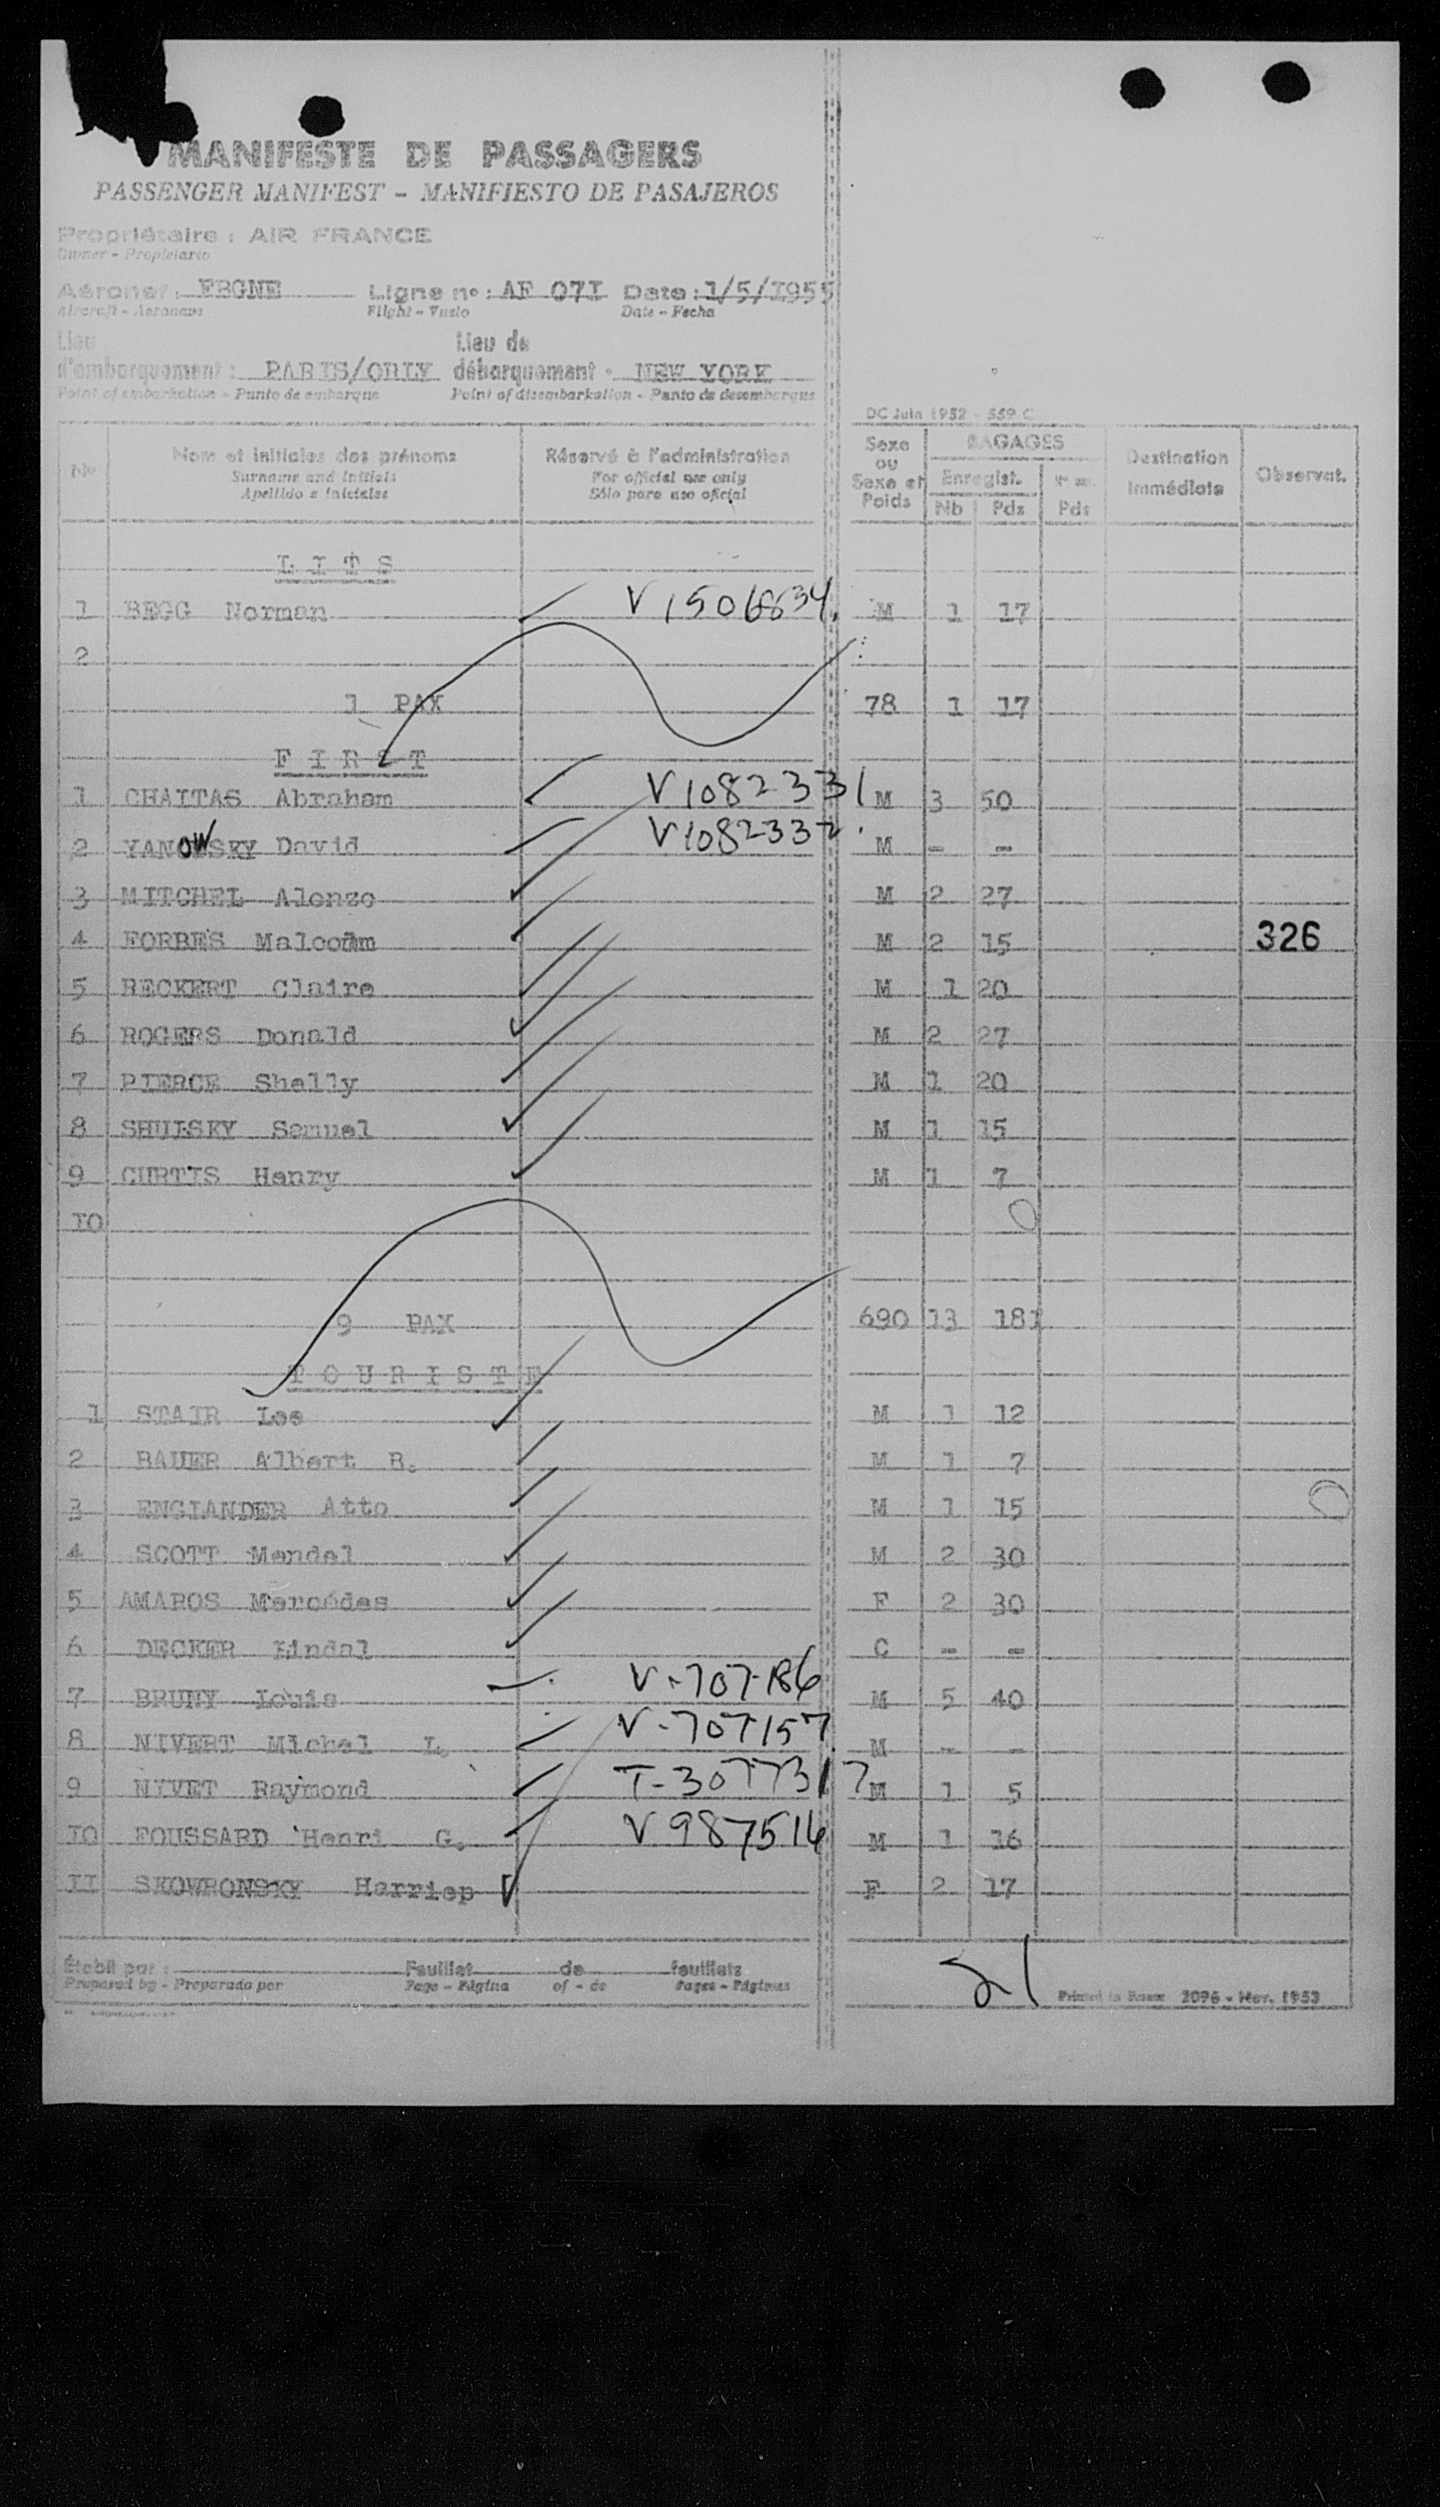 MANIFESTE DE PASSAGERS
PASSENGER MANIFEST - MANIFIESTO DE PASAJEROS
Propriétaire : AIR FRANCE
Owner - Propietario
Aéronef : FBGNE Ligne no : AF 07I Date : 1/5/I955
Aircraft - Aeronave Flight - Vuelo Date - Fecha
Lieu d'embarquement : PARIS/ORLY Lieu de débarquement : NEW YORK
Point of embarkation - Punto de embarque Point of disembarkation - Punto de desembarque
DC Juin 1952 - 559 C
No Nom et initiales des prénoms Réservé à l'administration Sexe ou Sexe et Poids BAGAGES Destination Immédiate Observat.
Surname and initials For official use only Enregist.
Apellido e iniciales Sólo para uso oficial Nb Pds Pds
L I T S
1 BEGG Norman V 1506834. M 1 17
2
1 PAX 78 1 17
F I R S T
1 CHAITAS Abraham V1082331 M 3 50
2 David V1082332. M - -
3 MITCHEL Alonzo M 2 27
4 FORBES M 2 15 326
5 RECKERT Claire M 1 20
6 ROGERS Donald M 2 27
7 PIERCE Shelly M 1 20
8 SHULSKY Samuel M 1 15
9 CURTIS Henry M 1 7
IO
9 PAX 690 13 181
T O U R I S T E
1 STAIR Lee M 1 12
2 BAUER Albert R. M 1 7
3 ENGLANDER Atto M 1 15
4 SCOTT Mendel M 2 30
5 AMAROS Mercédes F 2 30
6 DECKER C - -
7 BRUNY Louis V-707186 M 5 40
8 NIVERT Michel L. V-707157 M - -
9 NYVET Raymond T-3077317 M 1 5
IO FOUSSARD Henri G. V 987516 M 1 16
II SKOWRONSKY Harriep F 2 17
Établi par : Feuillet de feuillets 21
Prepared by - Preparado por Page - Página of - de Pages - Páginas Printed in France 2096 - Nov. 1953